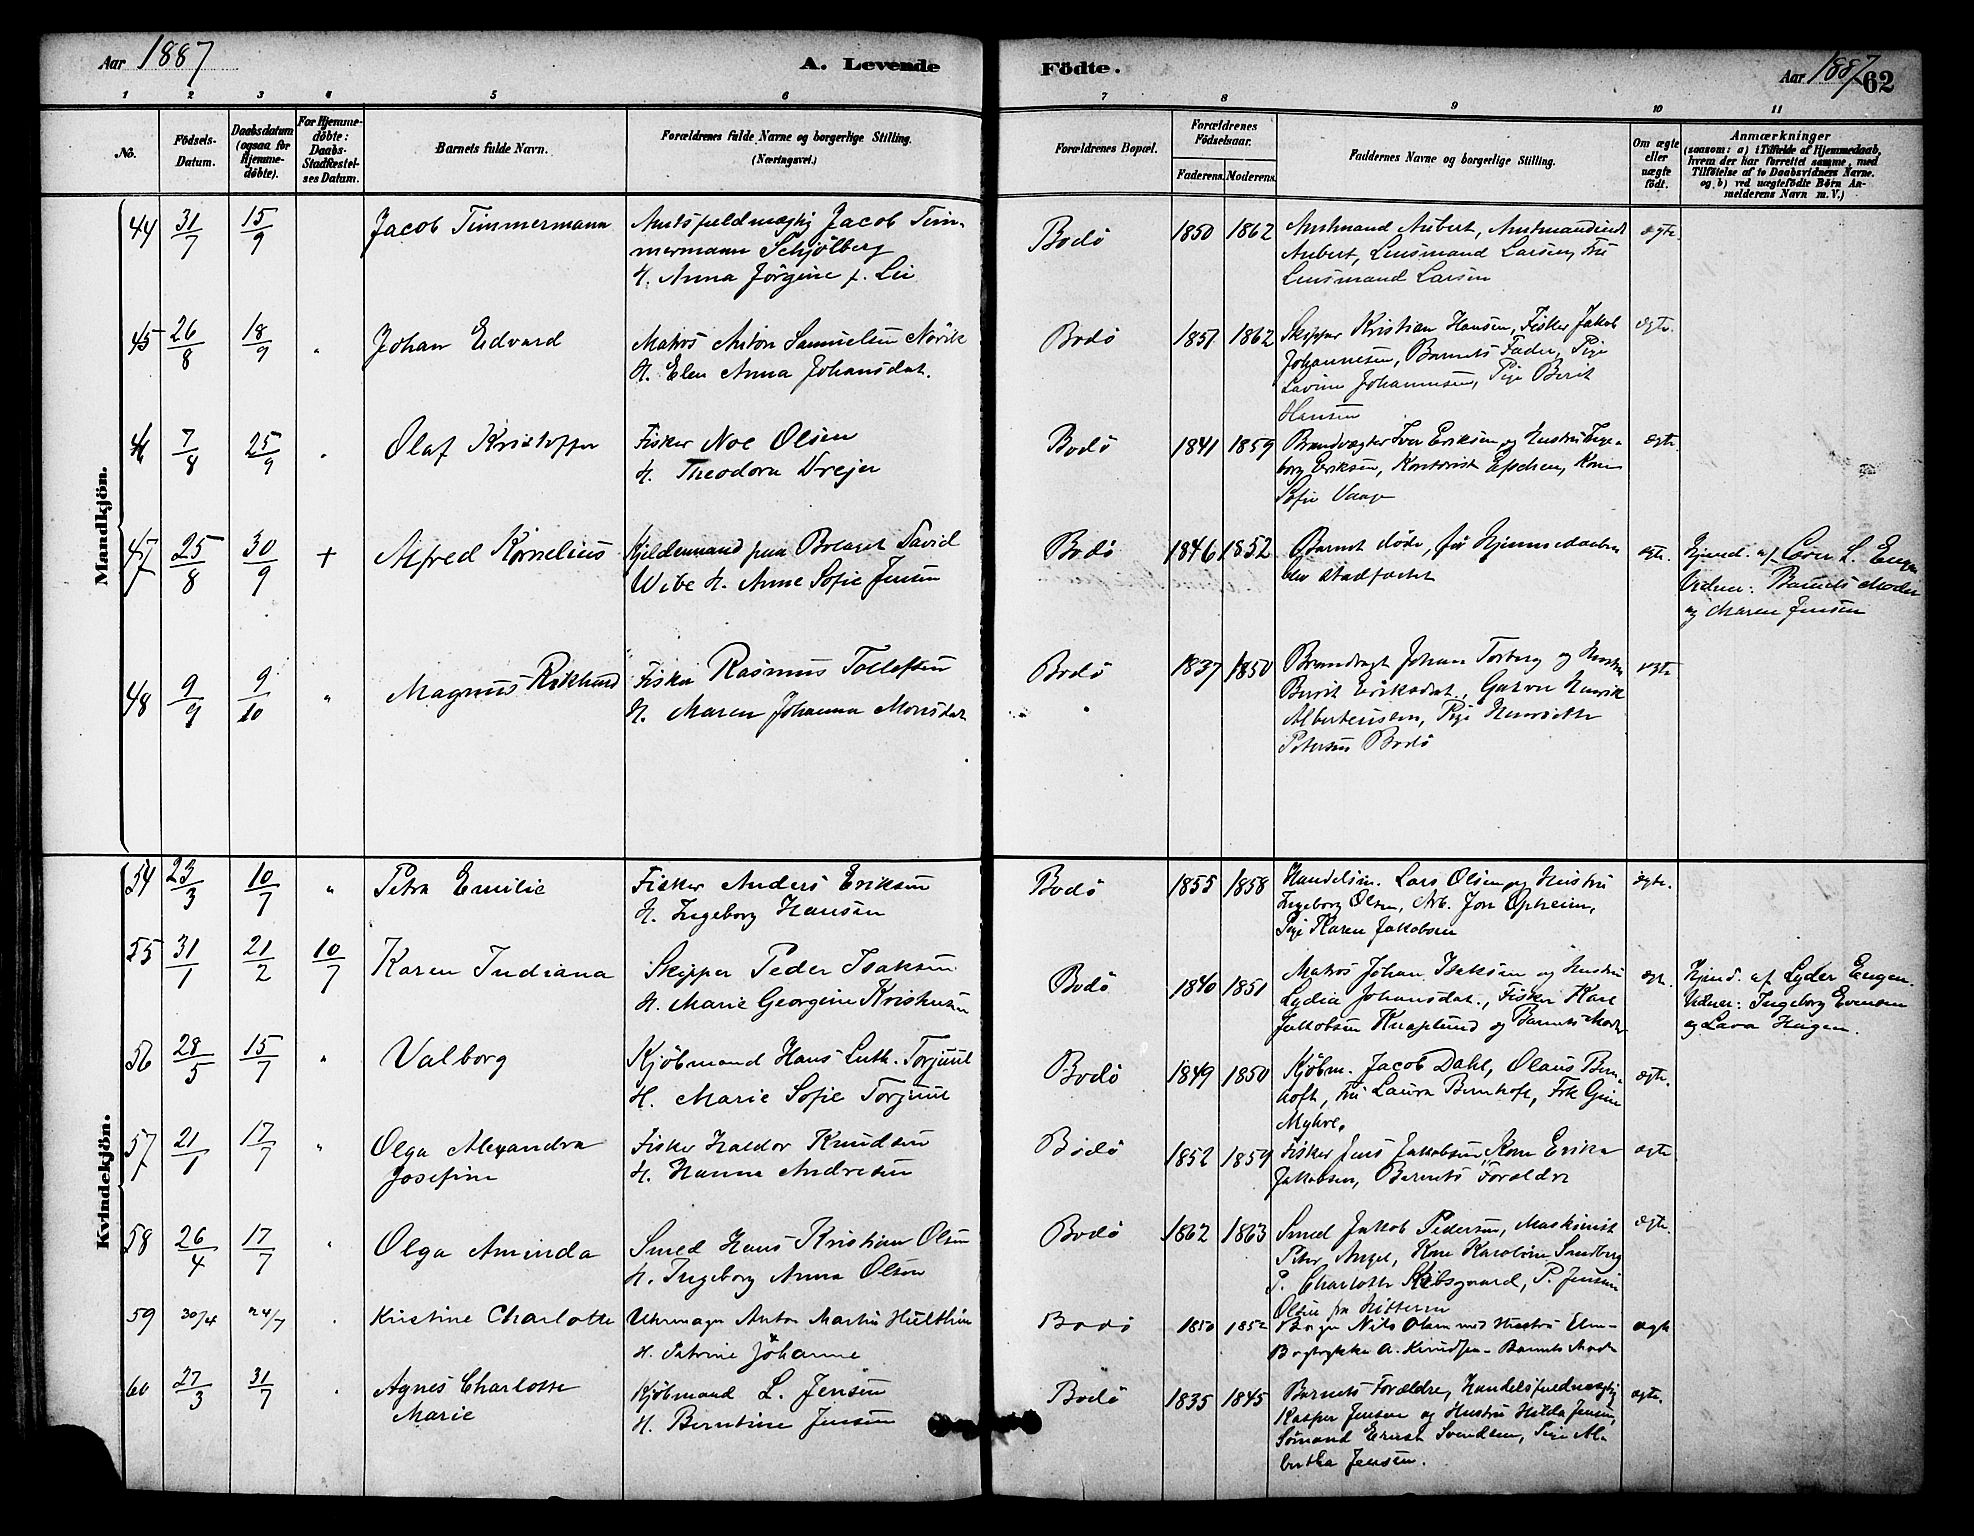 Aar 1887
A. Levende
Födte.
Aar 1887
62
1 2 3 4 5 6 7 8 9 10 11
No.
Födsels-
Datum.
Daabsdatum
(ogsaa for
Hjemme-
döbte).
For Hjemme-
döbte:
Daabs-
Stadfæstel-
ses Datum.
Barnets fulde Navn.
Forældrenes fulde Navne og borgerlige Stilling.
(Næringsvei.)
Forældrenes Bopæl.
Forældrenes
Födselsaar.
Faderens. Moderens.
Faddernes Navne og borgerlige Stilling.
Om ægte
eller
uægte
födt.
Anmærkninger
(saasom: a) i Tilfælde af Hjemmedaab,
hvem der har forrettet samme, med
Tilföielse af to Daabsvidners Navne.
og b) ved uægtefödte Börn An-
melderens Navn m. V.)
Mandkjön.
44 31/7 15/9 Jacob Timmermann
Amtsfuldmægtig Jacob Tim-
mermann Schjölberg
H. Anna Jörgine f. Lie
Bodö 1850 1862
Amtmand Aubert, Amtmandinde
Aubert, Lensmand Larsen, Fru
Lensmand Larsen
ægte.
45 26/8 18/9 " Johan Edvard
Matros Anton Samuelsen Növik
H. Elen Anna Johansdat.
Bodö 1857 1862
Skipper Kristian Hansen, Fisker Jakob
Johannesen, Barnets Fader, Pige
Lavine Johannesen, Pige Berit
Hansen
ægte.
46 7/8 25/9 " Olaf Kristoffer
Fisker Noe Olsen
H. Theodora Vrejer
Bodö 1841 1859
Brandvægter Iver Eriksen og Hustru Inge-
borg Eriksen, Kontorist Kone
Sofie Vaage
ægte.
47 25/8 30/9 + Alfred Kornelius
Kjeldermand paa Bolaget David
Wibe H. Anne Sofie Jensen
Bodö 1846 1852
Barnet döde, för Hjemmedaaben
blev stadfæstet
ægte.
Hjemd. af L. Engen
Vidner: Barnets Moder
og Maren Jensen
48 9/9 9/10 " Magnus Rikhard
Fisker Rasmus Tollefsen
H. Maren Johanna Monsdat.
Bodö 1837 1850
Brandvagt Johan Torberg og Hustru
Berit Eriksdat., Garver Henrik
Albertensen, Pige Henriette
Petersen Bodö
ægte
Kvindekjön.
54 23/3 10/7 " Petra Emilie
Fisker Anders Eriksen
H. Ingeborg Hansen
Bodö 1855 1858
Handelsm. Lars Olsen og Hustru
Ingeborg Olsen, Arb. Jon Opheim,
Pige Karen Jakobsen
ægte.
55 31/1 21/2 10/7 Karen Indiana
Skipper Peder Isaksen
H. Marie Georgine Kristensen
Bodö 1840 1851
Matros Johan Isaksen og Hustru
Lydia Johansdat., Fisker Karl
Jakobsen Knaplund og Barnets Moder
ægt.
Hjemd. af Lyder Engen.
Vidner: Ingeborg Evensen
og Lava Heigen.
56 28/5 15/7 " Valborg
Kjöbmand Hans Luth. Torjuul
H. Marie Sofie Torjuul
Bodö 1849 1850
Kjöbm. Jacob Dahl, Olaus Bern-
hoft, Fru Laura Bernhoft, Frk Gine
Myhre.
ægte.
57 21/1 17/7 " Olga Alexandra
Josefine
Fisker Haldor Knudsen
H. Hanna Andresen
Bodö 1852 1859
Fisker Jens Jakobsen, Kone Erika
Jakobsen, Barnets Forældre
ægte.
58 26/4 17/7 " Olga Aminda
Smed Hans Kristian Olsen
H. Ingeborg Anna Olsen
Bodö 1862 1863
Smed Jakob Pedersen, Maskinist
Peter Angel, Kone Karoline Sandberg
P. Charlotte Skibsgaard, P. Jensine
Olsen fra Hitteren
ægte.
59 30/4 24/7 " Kristine Charlotte
Uhrmager Anton Martin Hulthin
H. Petrine Johanne
Bodö 1850 1852
Nils Olsen med Hustru
Bogtrykker A. Knudsen - Barnets Moder
ægte
60 27/3 31/7 " Agnes Charlotte
Marie
Kjöbmand L. Jensen
H. Berntine Jensen
Bodö 1835 1845
Barnets Forældre, Handelsfuldmægtig
Kasper Jensen og Hustru Hilda Jensen,
Sömand Ernst Svendsen, Pige Al-
bertha Jensen.
ægte.